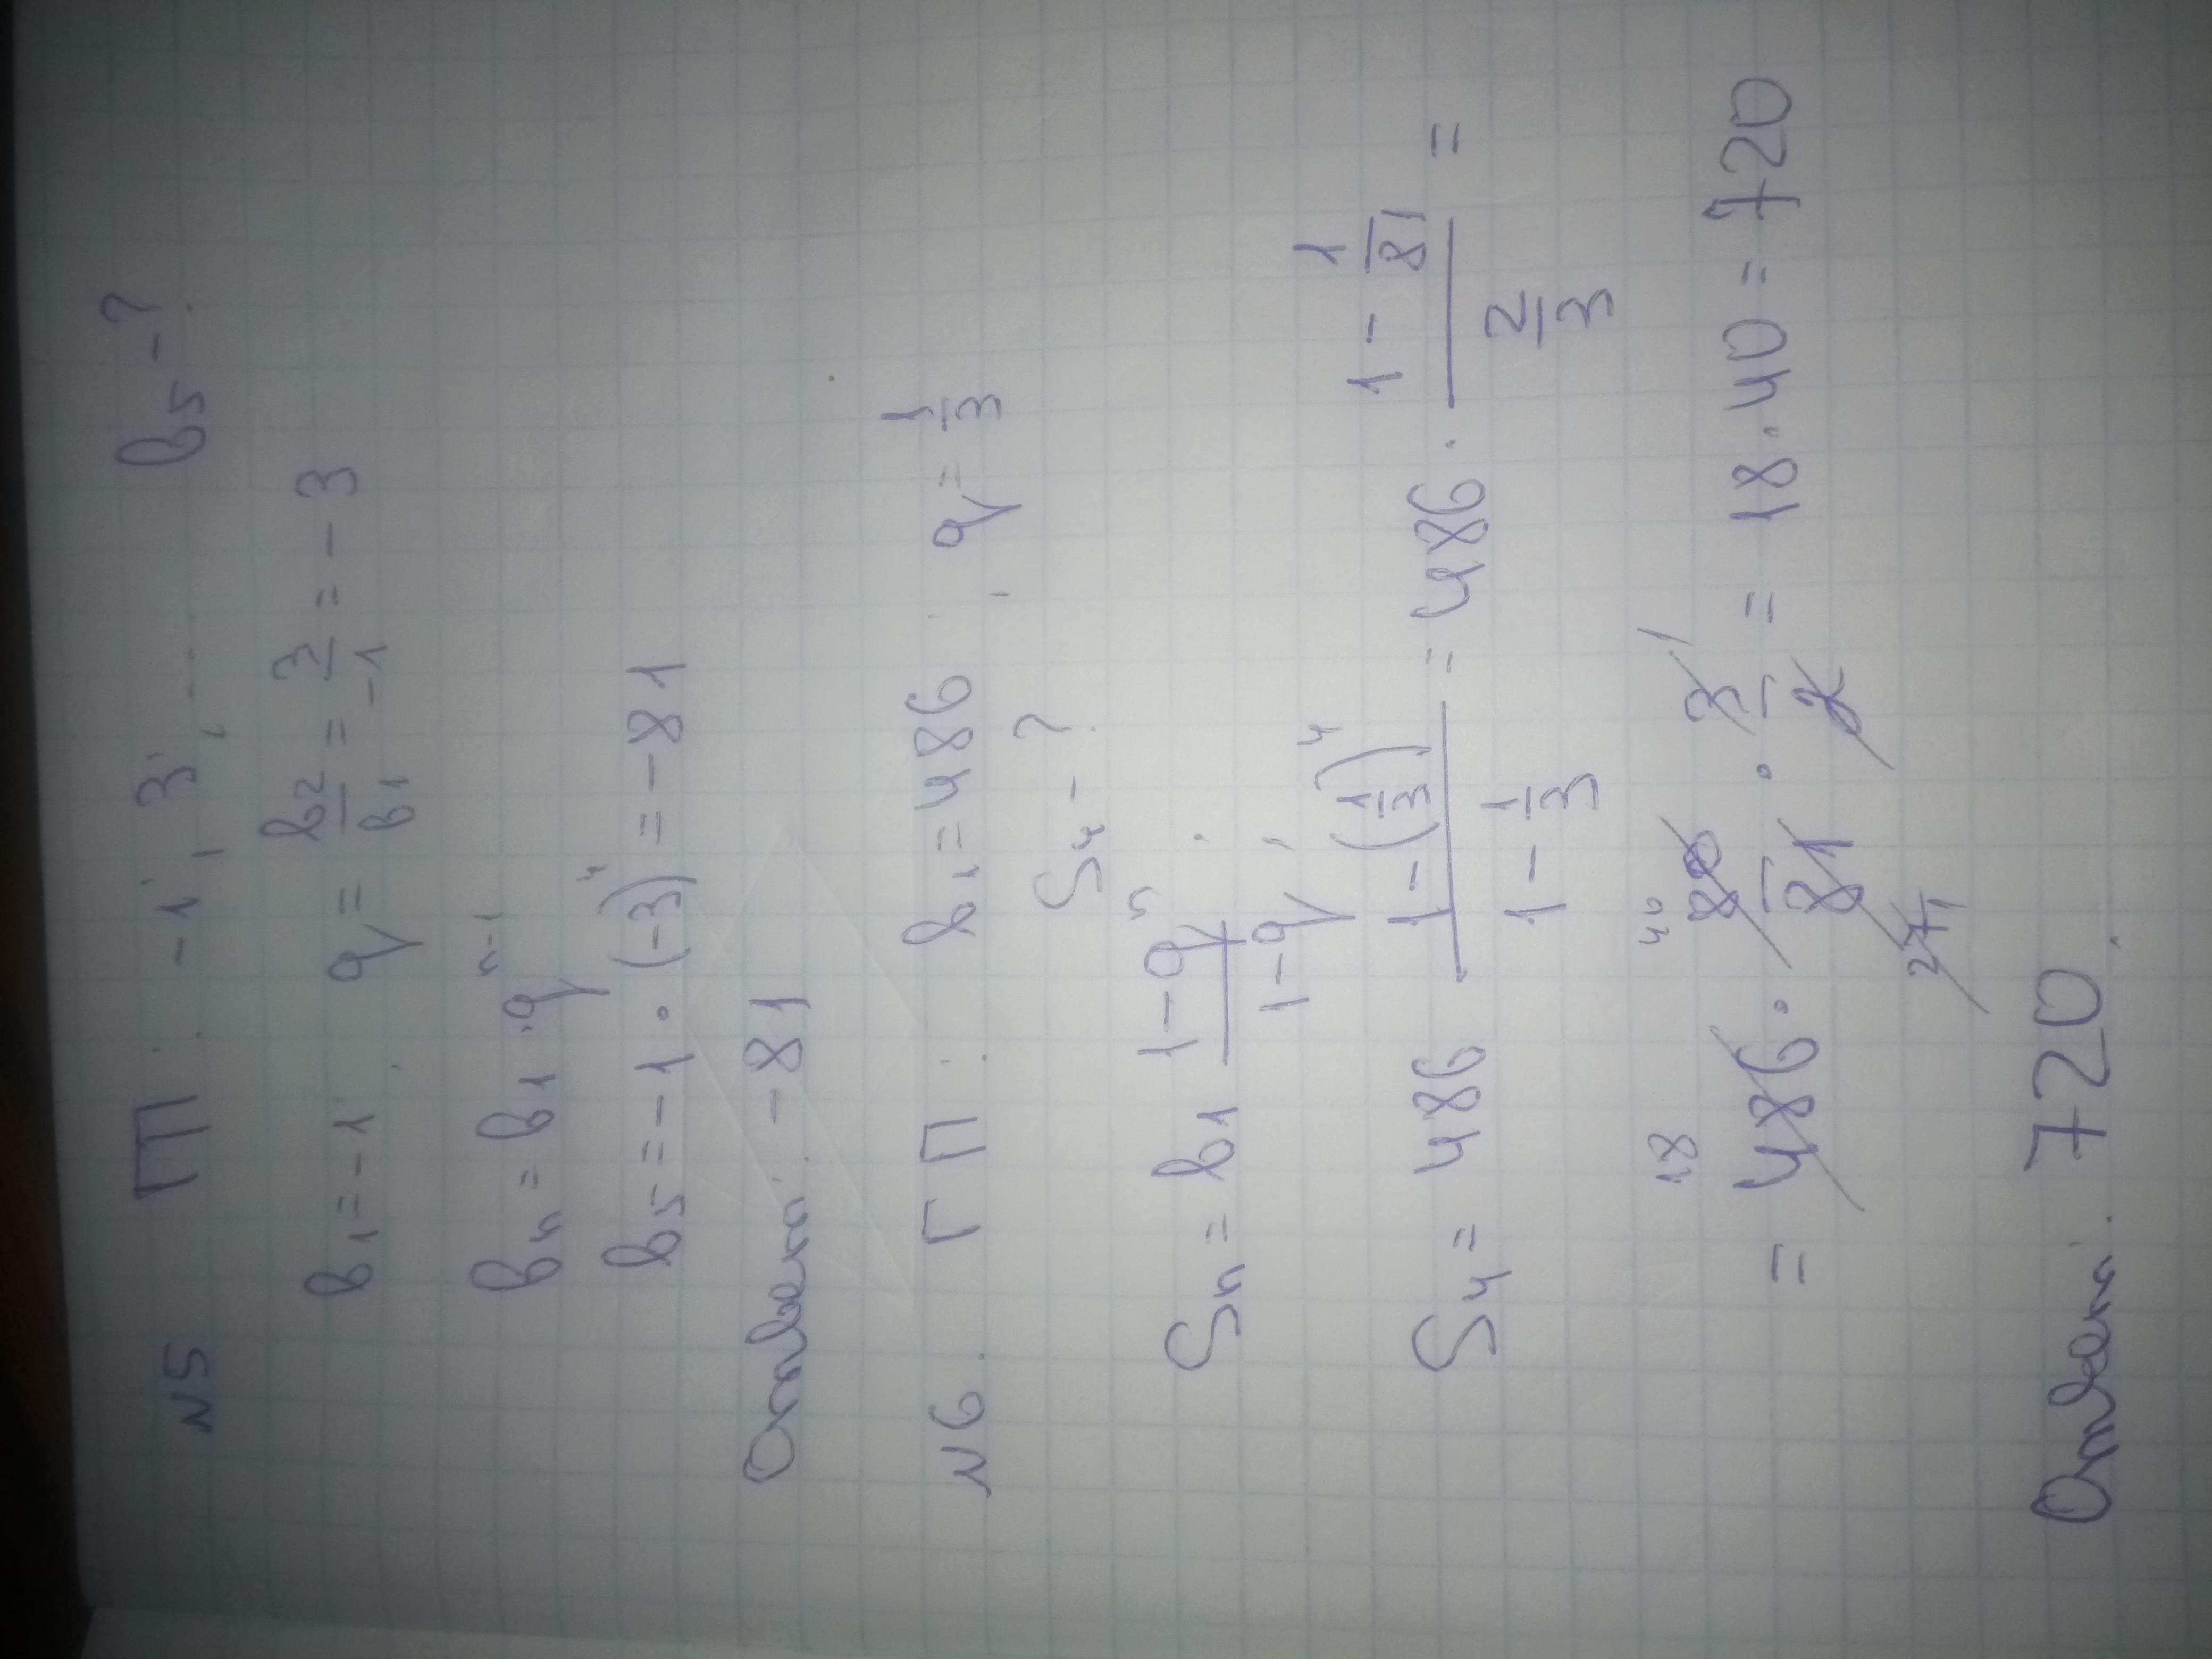 N5 ГП: -1; 3; ... b₅ - ?
b₁ = -1 q = b₂/b₁ = 3/-1 = -3
bₙ = b₁ · qⁿ⁻¹
b₅ = -1 · (-3)⁴ = -81
Ответ: -81
N6. ГП: b₁ = 486; q = 1/3
S₄ - ?
Sₙ = b₁ (1-qⁿ)/(1-q);
S₄ = 486 (1-(1/3)⁴)/(1-1/3) = 486 · (1 - 1/81)/(2/3) =
= 486 · 80/81 · 3/2 = 18 · 40 = 720
Ответ: 720.